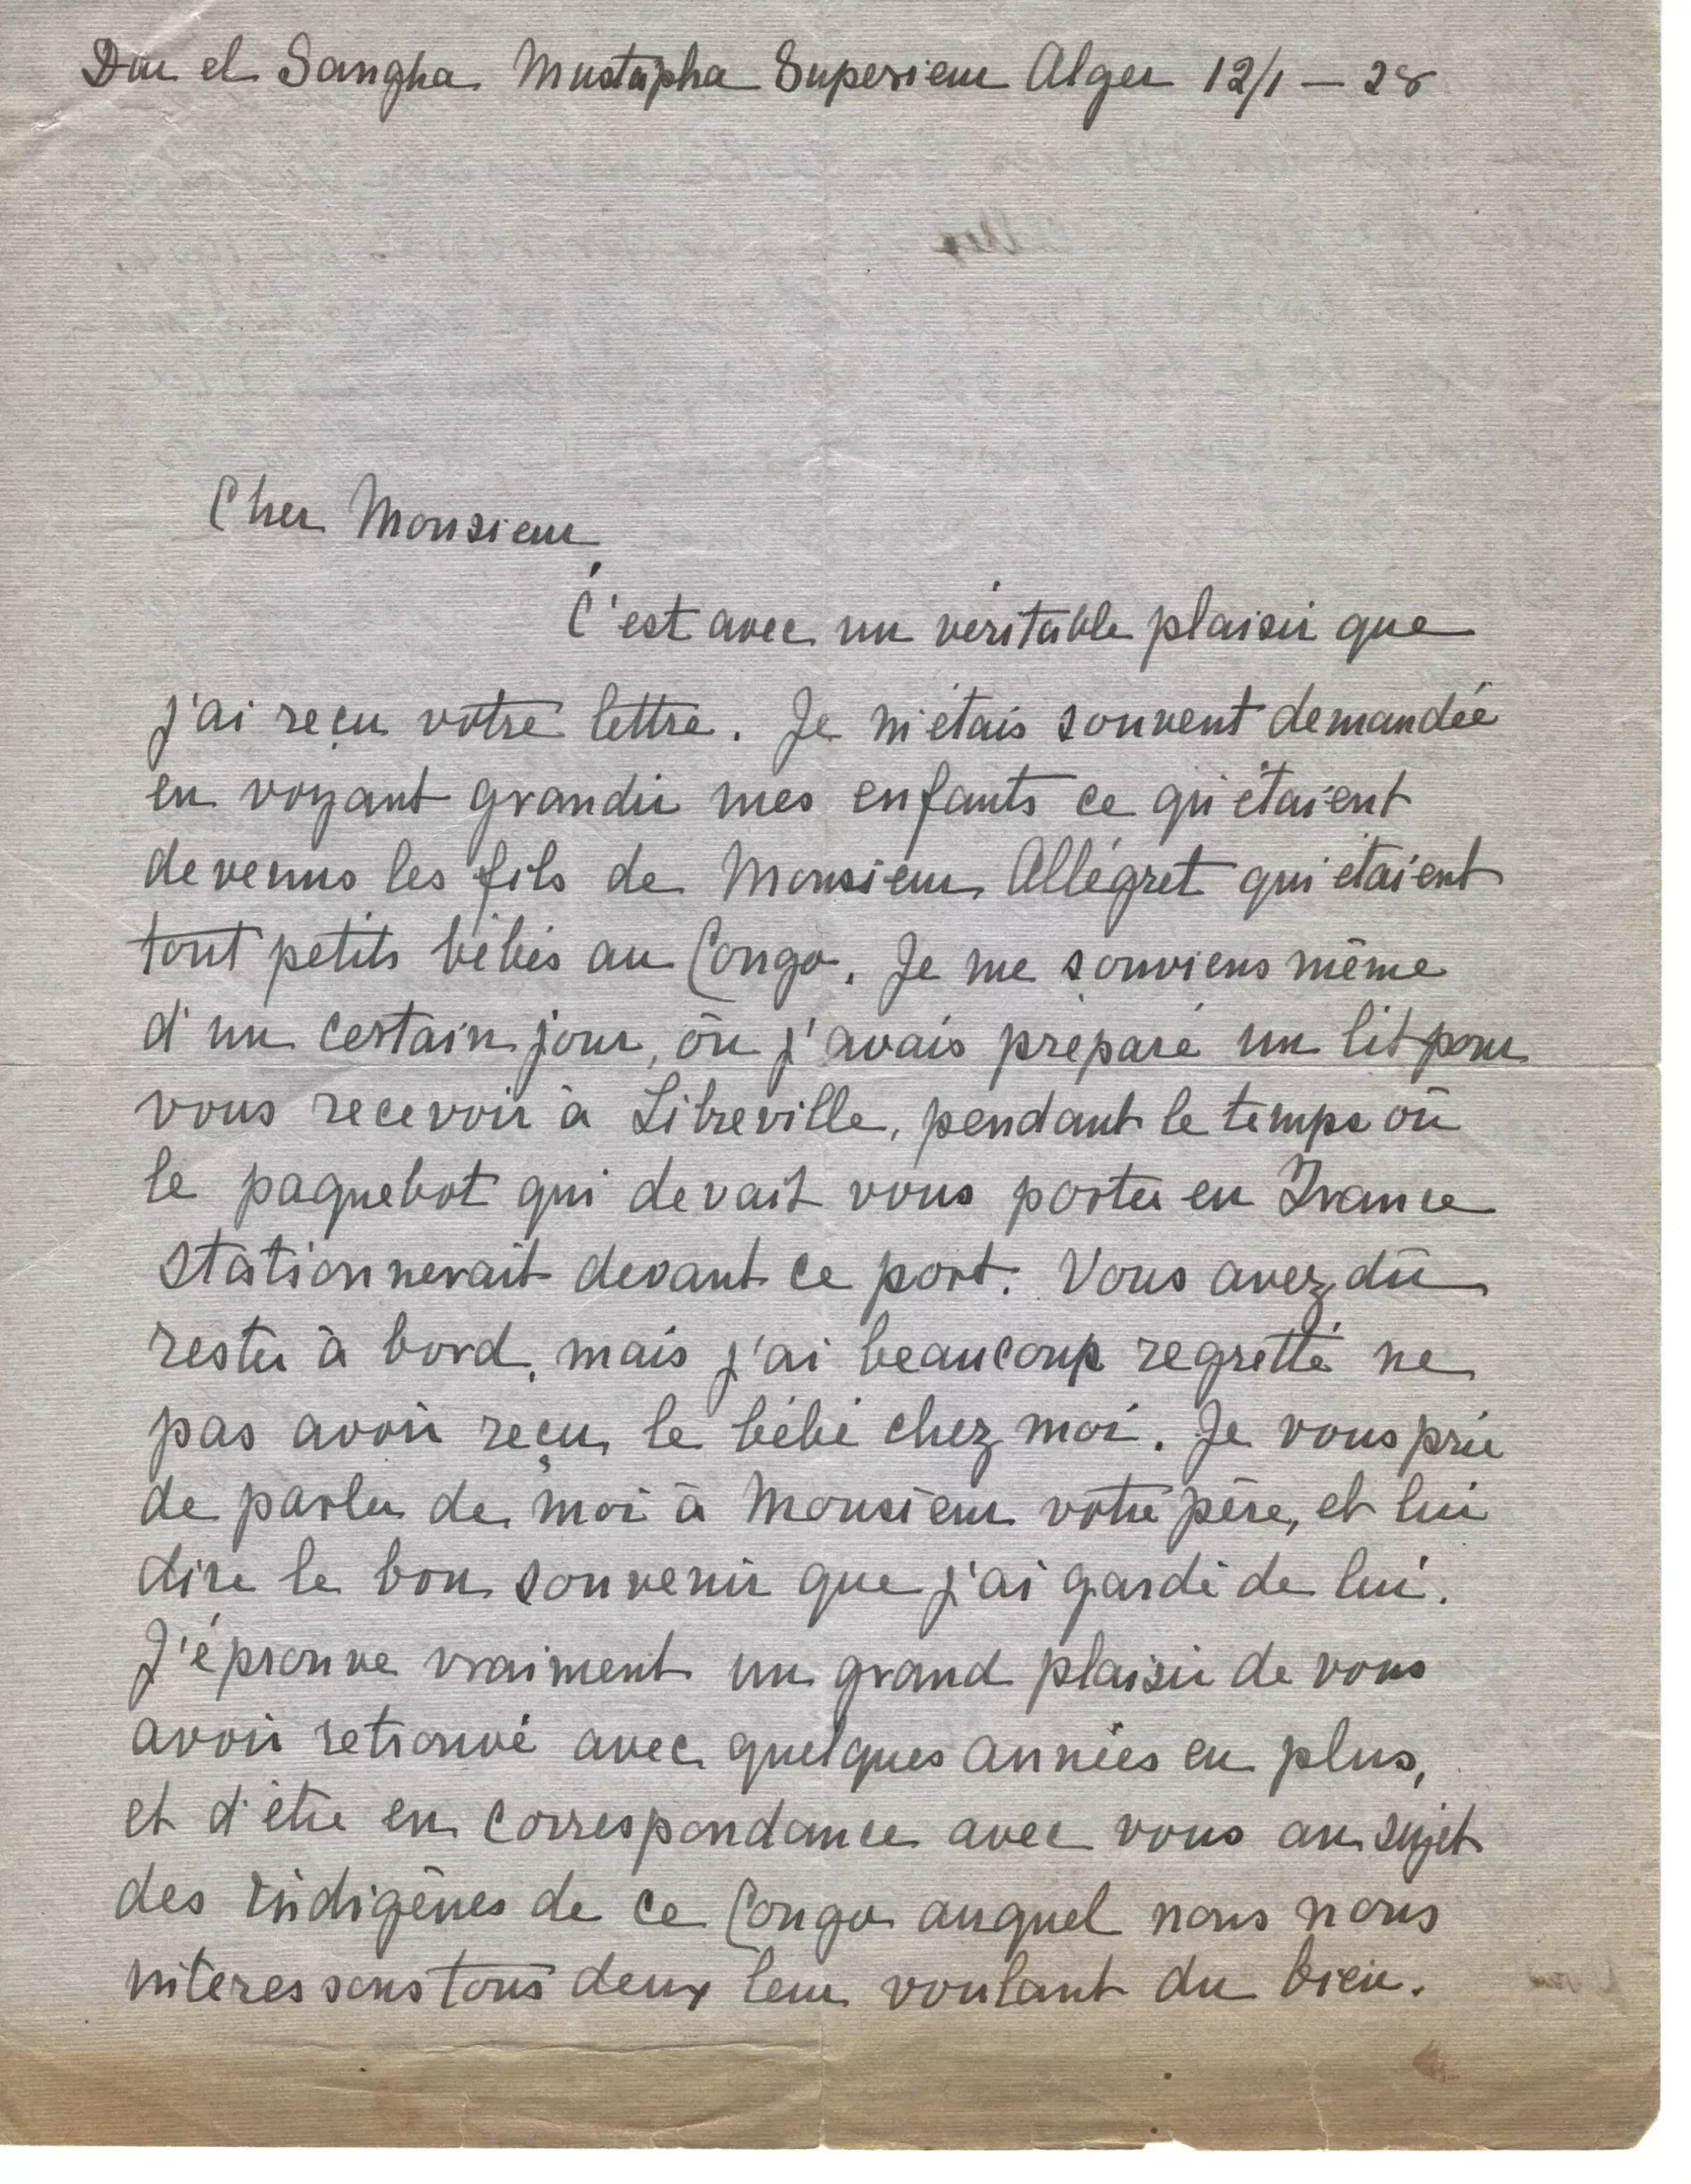 Dar el Sangha Mustapha Superieur Alger 12/1 – 28
Cher Monsieur,
C'est avec un véritable plaisir que
j'ai reçu votre lettre. Je m'étais souvent demandée
en voyant grandir mes enfants ce qu'étaient
devenus les fils de Monsieur Allégret qui étaient
tout petits bébés au Congo. Je me souviens même
d'un certain jour, où j'avais préparé un lit pour
vous recevoir à Libreville, pendant le temps où
le paquebot qui devait vous porter en France
stationnerait devant ce port. Vous avez dû
rester à bord, mais j'ai beaucoup regretté ne
pas avoir reçu le bébé chez moi. Je vous prie
de parler de moi à Monsieur votre père, et lui
dire le bon souvenir que j'ai gardé de lui.
J'éprouve vraiment un grand plaisir de vous
avoir retrouvé avec quelques années en plus,
et d'être en correspondance avec vous au sujet
des indigènes de ce Congo auquel nous nous
interessons tous deux leur voulant du bien.